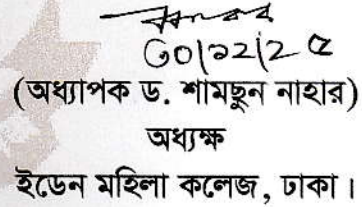 ৩০/১২/২৫
(অধ্যাপক ড. শামছুন নাহার)
অধ্যক্ষ
ইডেন মহিলা কলেজ, ঢাকা।